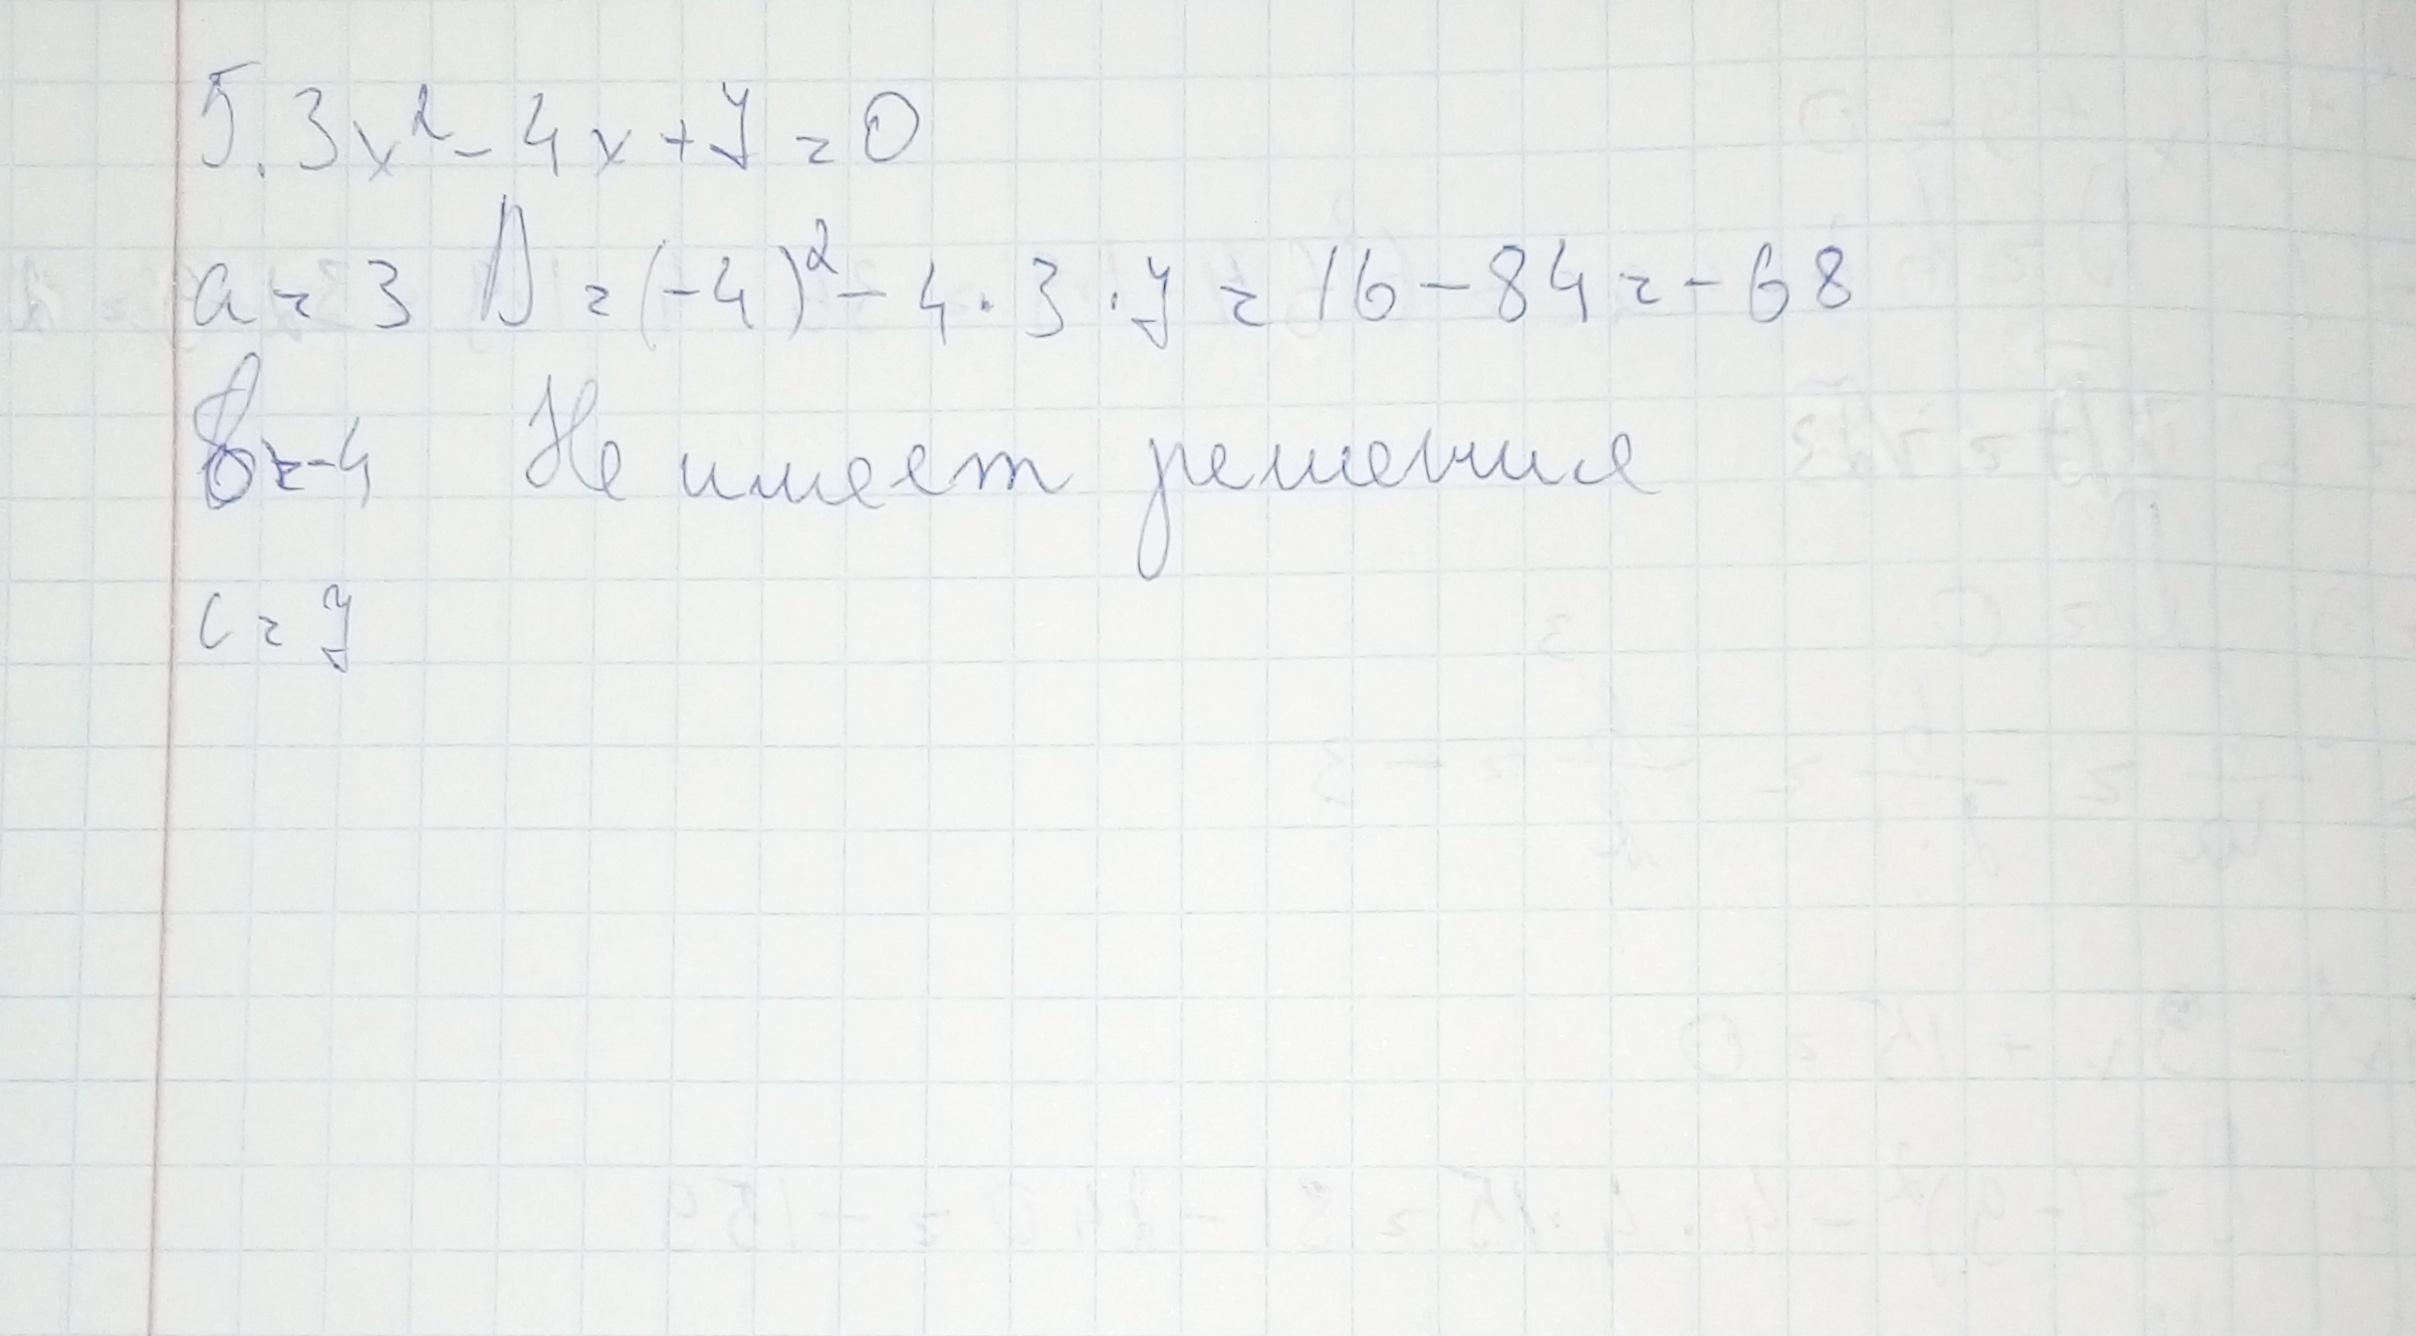 5. 3x² - 4x + 7 = 0
a = 3 D = (-4)² - 4 · 3 · 7 = 16 - 84 = - 68
b = -4 Не имеет решения
c = 7